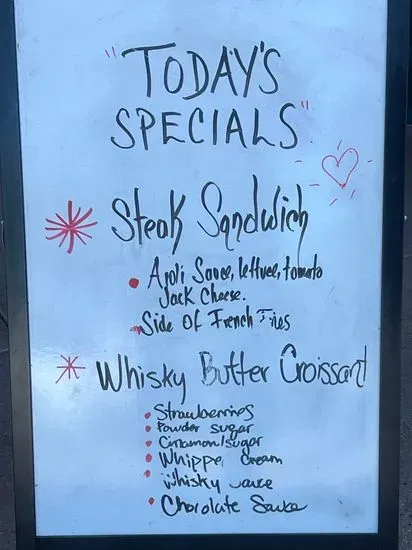 "TODAY'S
SPECIALS"
Steak Sandwich
Ajoli Sauce, lettuce, tomato
Jack Cheese.
Side Of French Fries
Whisky Butter Croissant
Strawberrings
Powder sugar
Cinnamon/sugar
Whippe Cream
Whisky
Chorolate Sauce